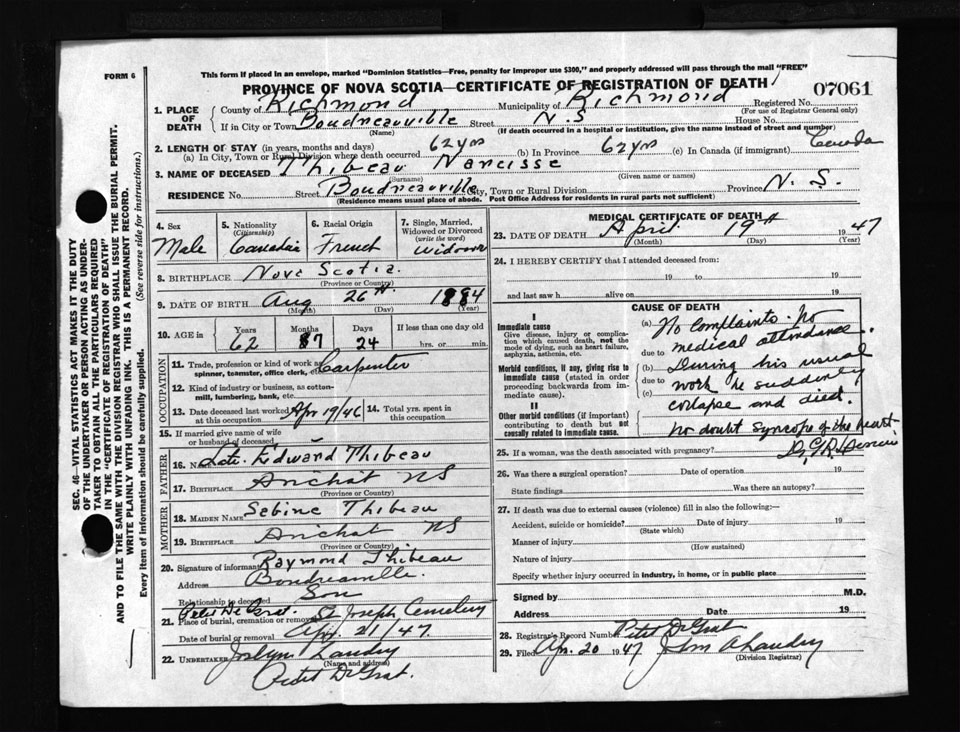 FORM 6
This form if placed in an envelope, marked "Dominion Statistics—Free, penalty for improper use $300," and properly addressed will pass through the mail "FREE"
PROVINCE OF NOVA SCOTIA—CERTIFICATE OF REGISTRATION OF DEATH
07061
1. PLACE OF DEATH
County of Richmond Municipality of Richmond Registered No.
(For use of Registrar General only)
If in City or Town Boudreauville Street N.S House No.
(Name) (If death occurred in a hospital or institution, give the name instead of street and number)
2. LENGTH OF STAY (in years, months and days)
(a) In City, Town or Rural Division where death occurred 62 yrs (b) In Province 62 yrs (c) In Canada (if immigrant) Canada
3. NAME OF DECEASED Thibeau Narcisse
(Surname) (Given name or names)
RESIDENCE No. Street Boudreauville City, Town or Rural Division Province N. S.
(Residence means usual place of abode. Post Office Address for residents in rural parts not sufficient)
SEC. 46—VITAL STATISTICS ACT MAKES IT THE DUTY
OF THE UNDERTAKER OR PERSON ACTING AS UNDER-
TAKER TO OBTAIN ALL THE PARTICULARS REQUIRED
IN THE "CERTIFICATE OF REGISTRATION OF DEATH"
AND TO FILE THE SAME WITH THE DIVISION REGISTRAR WHO SHALL ISSUE THE BURIAL PERMIT.
WRITE PLAINLY WITH UNFADING INK. THIS IS A PERMANENT RECORD.
Every item of information should be carefully supplied. (See reverse side for instructions.)
4. Sex Male
5. Nationality (Citizenship) Canadia
6. Racial Origin French
7. Single, Married, Widowed or Divorced (write the word) Widower
8. BIRTHPLACE Nova Scotia.
(Province or Country)
9. DATE OF BIRTH Aug 26th 1884
(Month) (Day) (Year)
10. AGE in Years 62 Months 7 Days 24 If less than one day old hrs. or min.
OCCUPATION
11. Trade, profession or kind of work as spinner, teamster, office clerk, etc. Carpenter
12. Kind of industry or business, as cotton-mill, lumbering, bank, etc.
13. Date deceased last worked at this occupation Apr 19/46 14. Total yrs. spent in this occupation
15. If married give name of wife or husband of deceased
FATHER
16. Name Late. Edward Thibeau
17. Birthplace Arichat NS
(Province or Country)
MOTHER
18. Maiden Name Sebine Thibeau
19. Birthplace Arichat NS
(Province or Country)
20. Signature of informant Raymond Thibeau
Address Boudreauville.
Relationship to deceased Son
21. Place of burial, cremation or removal Petit De Grat. St Joseph Cemetery
Date of burial or removal Apr. 21/47
22. UNDERTAKER Landry
(Name and address)
Petit De Grat.
MEDICAL CERTIFICATE OF DEATH
23. DATE OF DEATH April 19th 1947
(Month) (Day) (Year)
24. I HEREBY CERTIFY that I attended deceased from:
19 to 19
and last saw h alive on 19
I
Immediate cause
Give disease, injury or complication which caused death, not the mode of dying, such as heart failure, asphyxia, asthenia, etc.
Morbid conditions, if any, giving rise to immediate cause (stated in order proceeding backwards from immediate cause).
II
Other morbid conditions (if important) contributing to death but not causally related to immediate cause.
CAUSE OF DEATH
(a) No complaints. No
due to medical attendance.
(b) During his usual
due to work he suddenly
(c) collapse and died.
No doubt syncope of the heart
25. If a woman, was the death associated with pregnancy?
26. Was there a surgical operation? Date of operation 19
State findings Was there an autopsy?
27. If death was due to external causes (violence) fill in also the following:—
Accident, suicide or homicide? Date of injury 19
(State which)
Manner of injury
(How sustained)
Nature of injury
Specify whether injury occurred in industry, in home, or in public place
Signed by M.D.
Address Date 19
28. Registrar's Record Number Petit De Grat
29. Filed Apr. 20 1947 Landry
(Division Registrar)